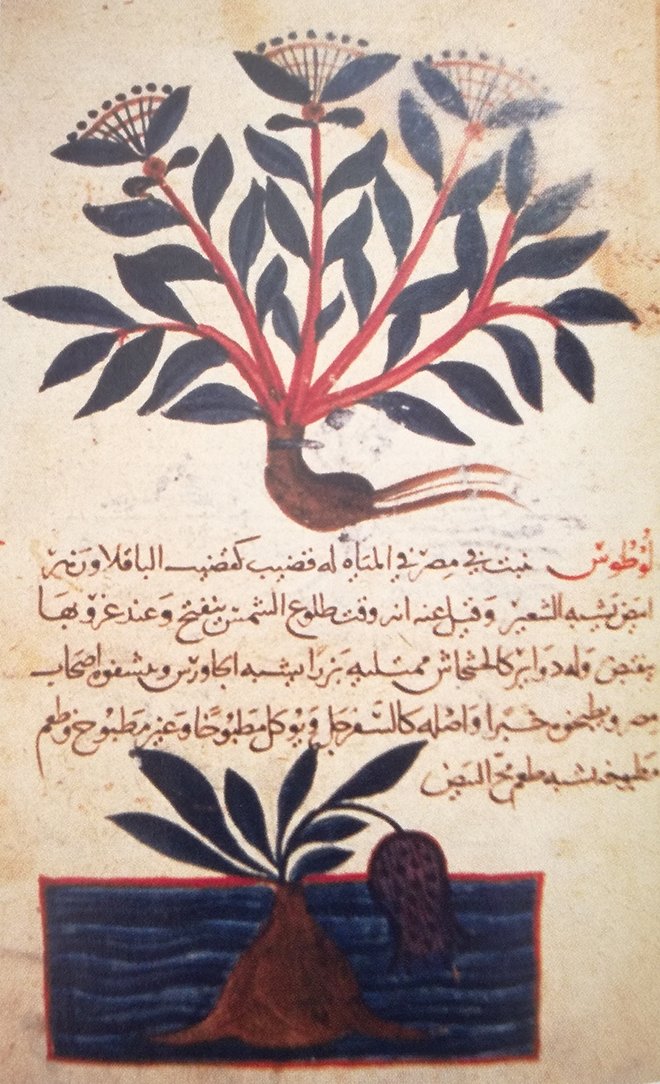 لوطوس ينبت في مصر في المياه له قضيب كقضيب الباقلا وزهر
ابيض يشبه الشعير وقيل عنه انه وقت طلوع الشمس يتفتح وعند غروبها
ينقبض وله دواير كالخشخاش ممتليه بزرا يشبه الجاورس ويشفوه اصحاب
مصر ويطبخوه خبزا واصله كالسفرجل يوكل مطبوخا وغير مطبوخ وطعم
مطبوخه يشبه طعم مخ البيض